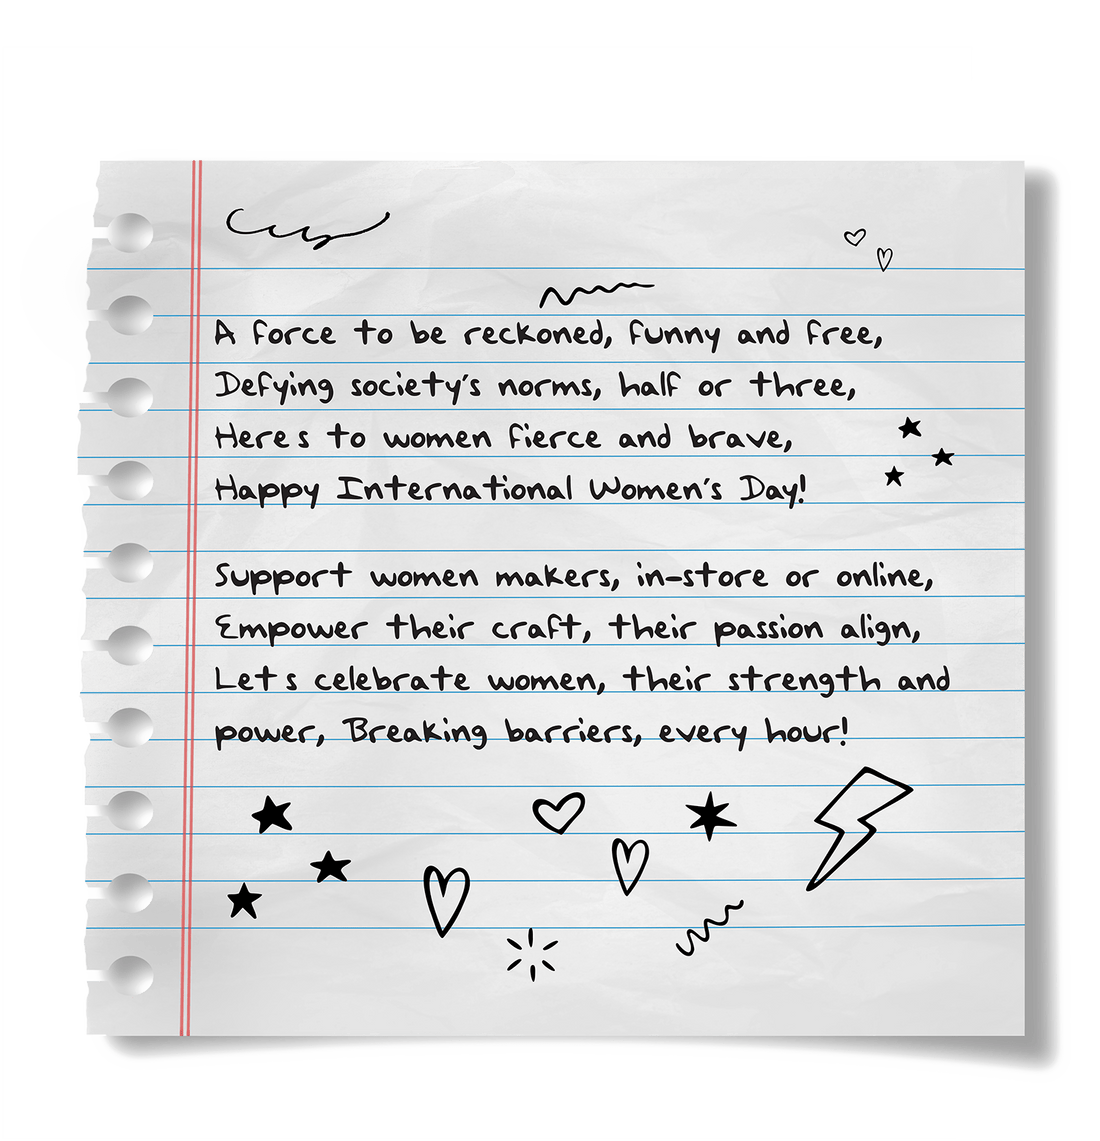 A force to be reckoned, funny and free,
Defying society's norms, half or three,
Heres to women fierce and brave,
Happy International Women's Day!
Support women makers, in-store or online,
Empower their craft, their passion align,
Lets celebrate women, their strength and
power, Breaking barriers, every hour!